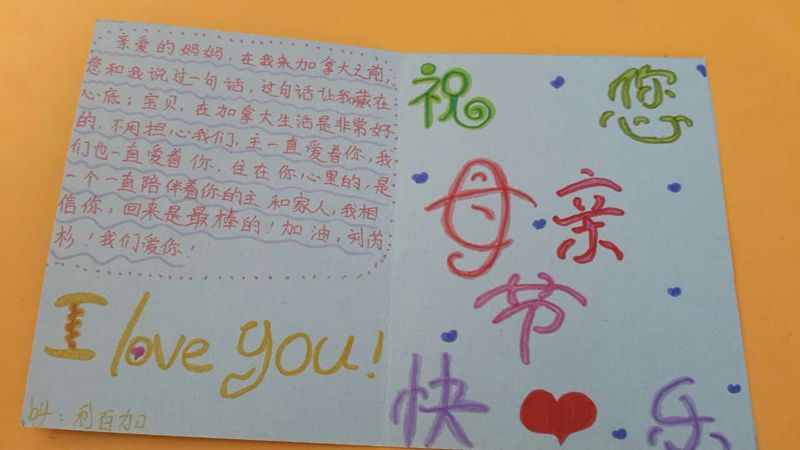 亲爱的妈妈，在我来加拿大之前，
您和我说过一句话，这句话让我藏在
心底；宝贝，在加拿大生活是非常好
的，不用担心我们，主一直爱着你，我
们也一直爱着你，住在你心里的，是
一个一直陪伴着你的主和家人，我相
信你，回来是最棒的！加油，刘芮
杉！我们爱你！
I love you!
by：利百加
祝您
母亲
节
快乐